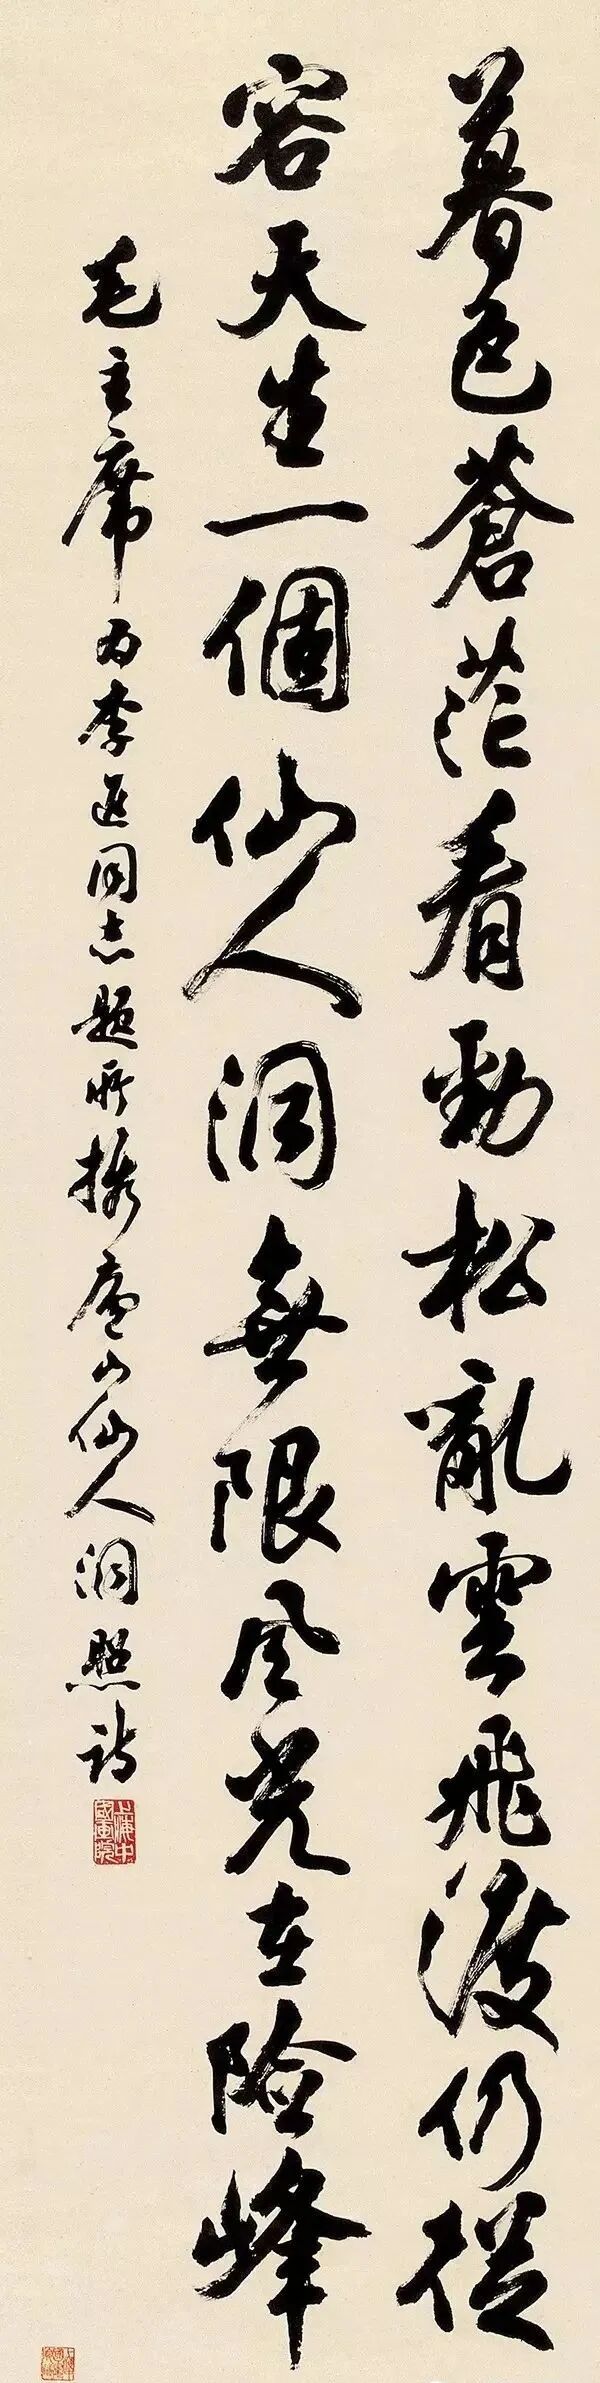 暮色蒼茫看勁松亂雲飛渡仍從
容天生一個仙人洞無限風光在險峰
毛主席为李进同志題所攝廬山仙人洞照詩
上海中國畫院